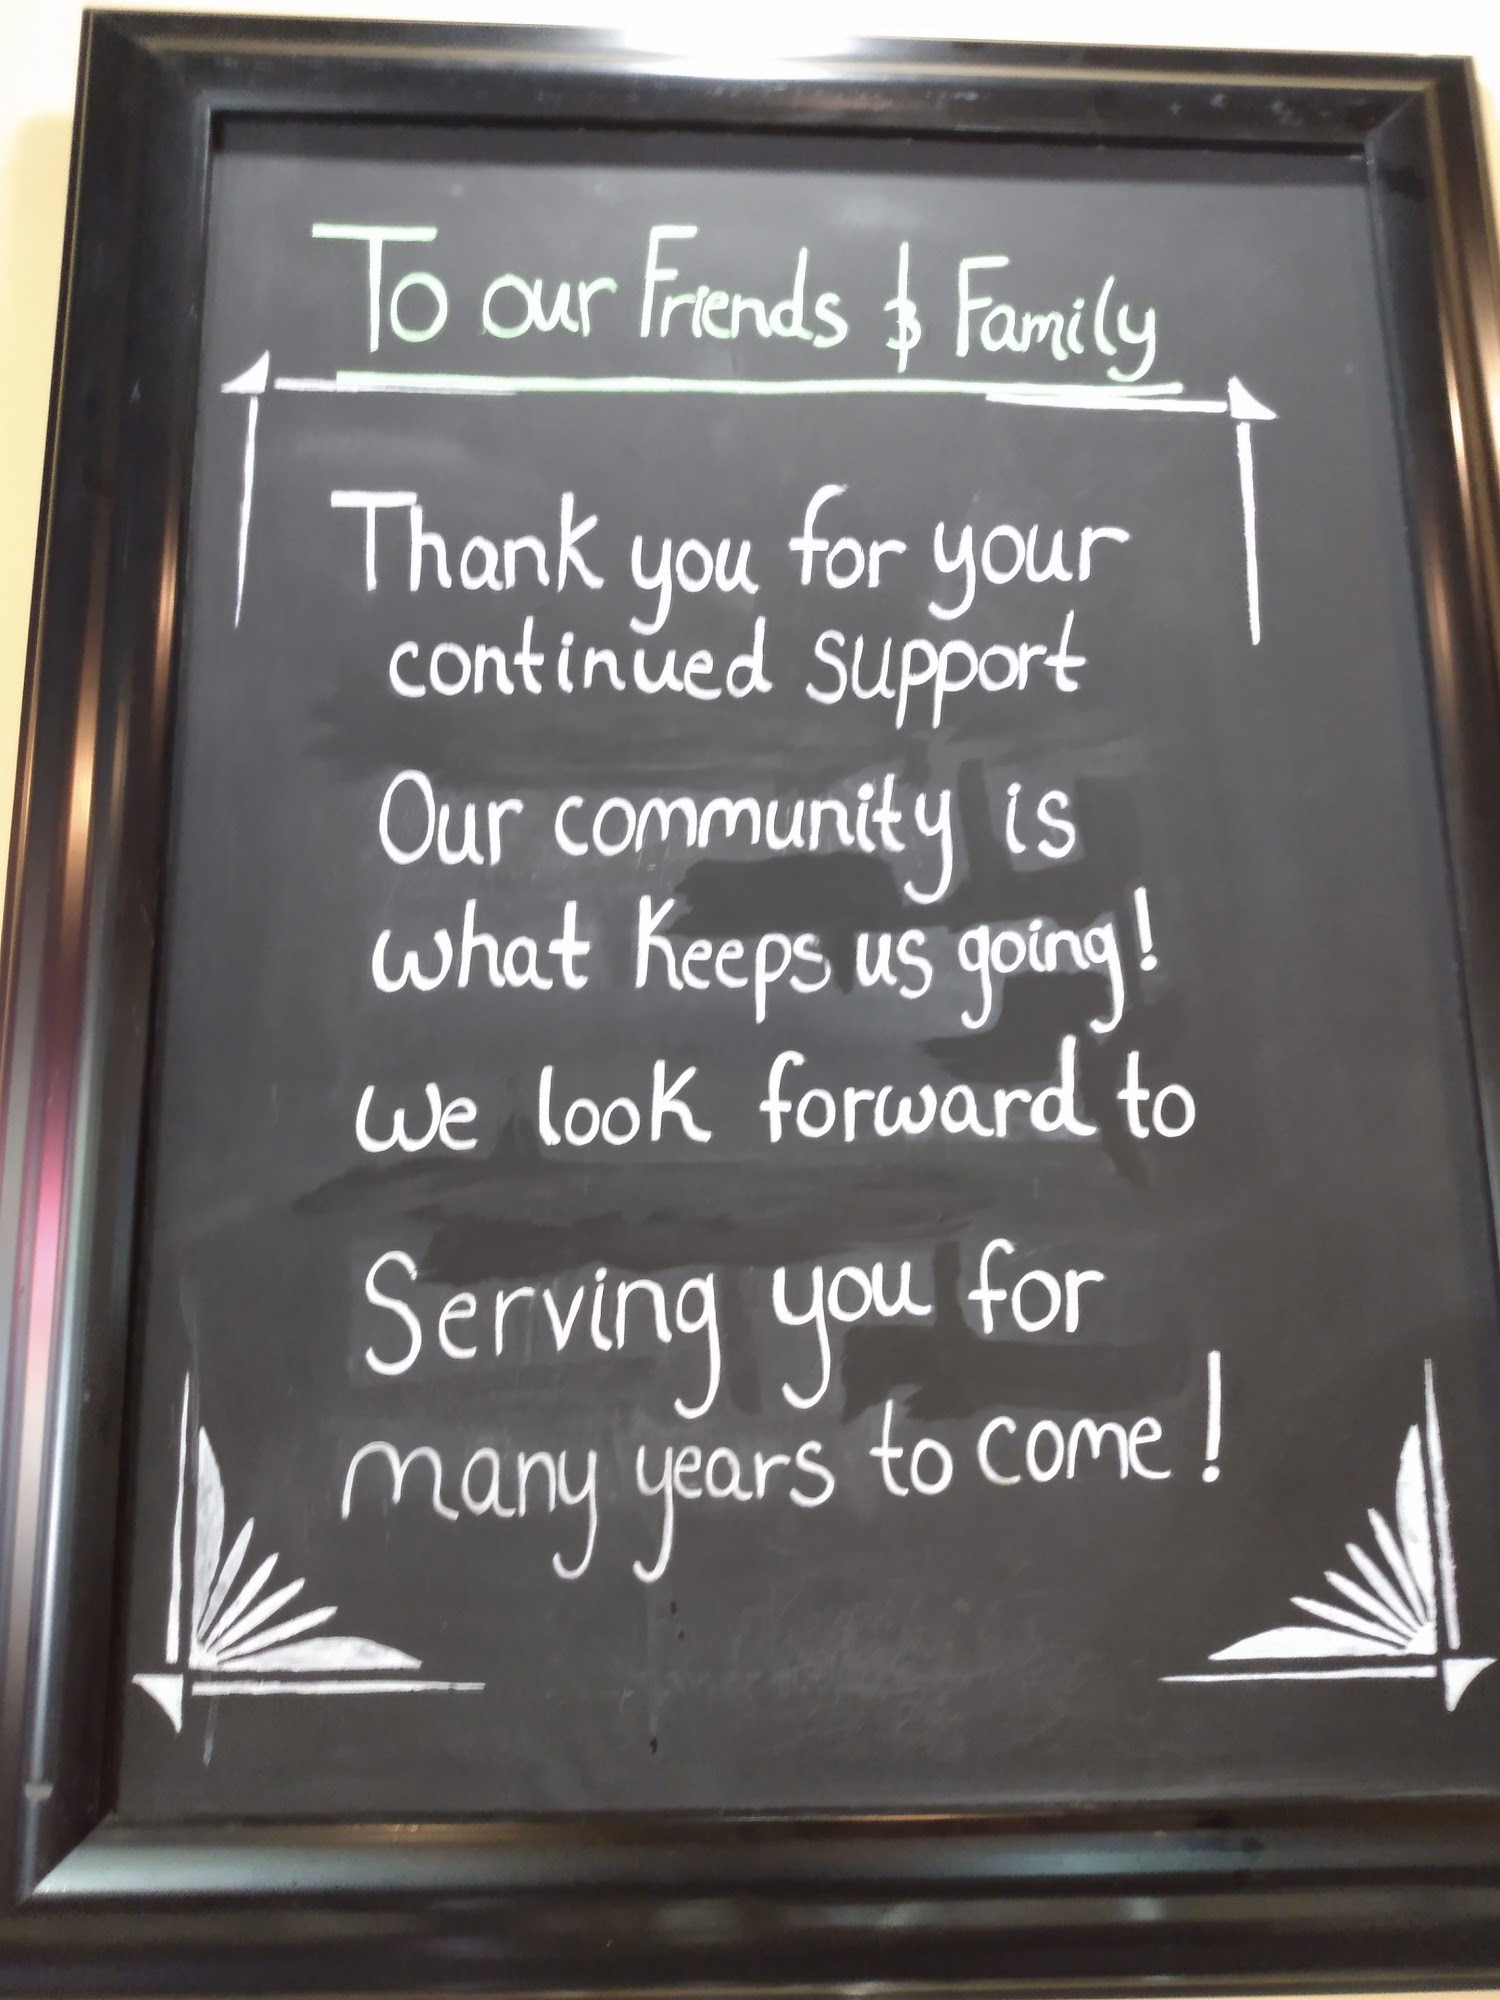 To our Friends & Family
Thank you for your
continued support
Our community is
what keeps us going!
We look forward to
Serving you for
many years to come!